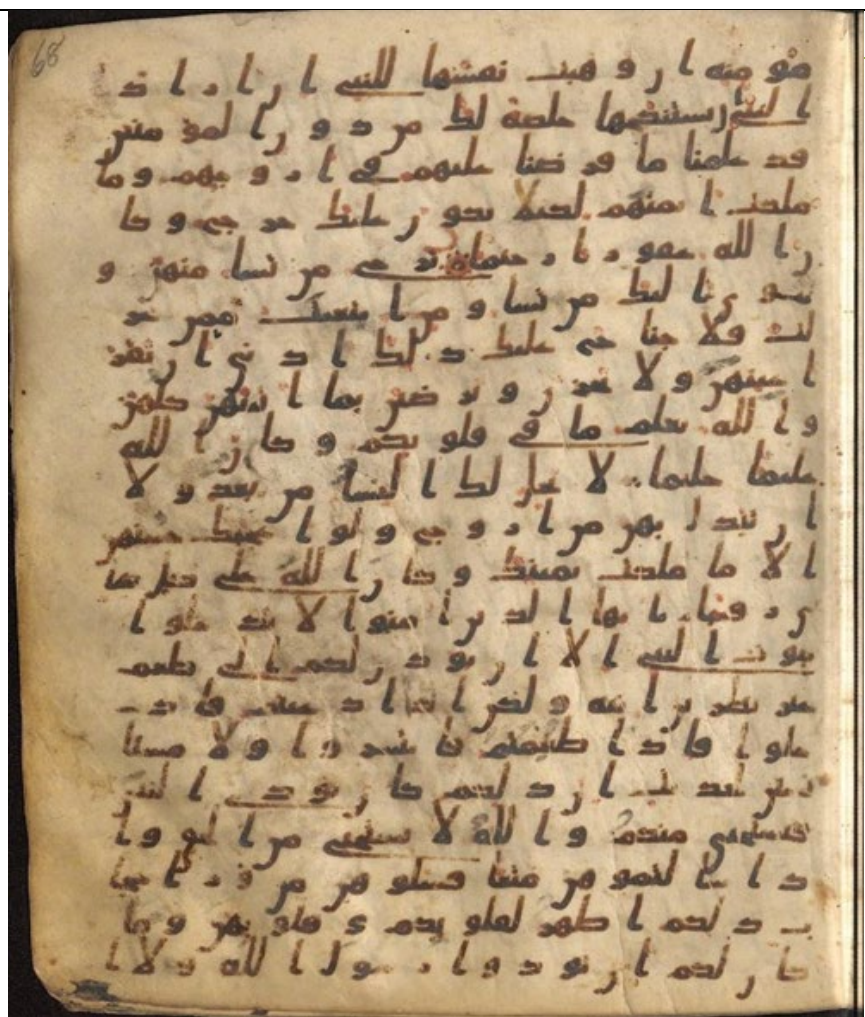 مومنه ان وهبت نفسها للنبى ان اراد
النبى ان يستنكحها خلصه لك من دون المومنين
قد علمنا ما فرضنا عليهم فى ازوجهم وما
ملكت ايمنهم لكيلا يكون عليك حرج وكا
ن الله غفورا رحيما ترجى من تشا منهن و
توى اليك من تشا ومن ابتغيت ممن عز
لت فلا جناح عليك ذلك ادنى ان تقر
اعينهن ولا يحزن ويرضين بما اتيتهن كلهن
والله يعلم ما فى قلوبكم وكان الله
عليما حليما لا يحل لك النسا من بعد ولا
ان تبدل بهن من ازوج ولو اعجبك حسنهن
الا ما ملكت يمينك وكان الله على كل شـ
ى رقيبا يايها الذين امنوا لا تدخلوا
بيوت النبى الا ان يوذن لكم الى طعم
غير نظرين انيه ولكن اذا دعيتم فاد
خلوا فاذا طعمتم فانتشروا ولا مستا
نسين لحديث ان ذلكم كان يوذى النبى
فيستحى منكم والله لا يستحى من الحق وا
ذا سالتموهن متعا فسلوهن من ورا حجا
ب ذلكم اطهر لقلوبكم و قلوبهن وما
كان لكم ان توذوا رسول الله ولا ا
68